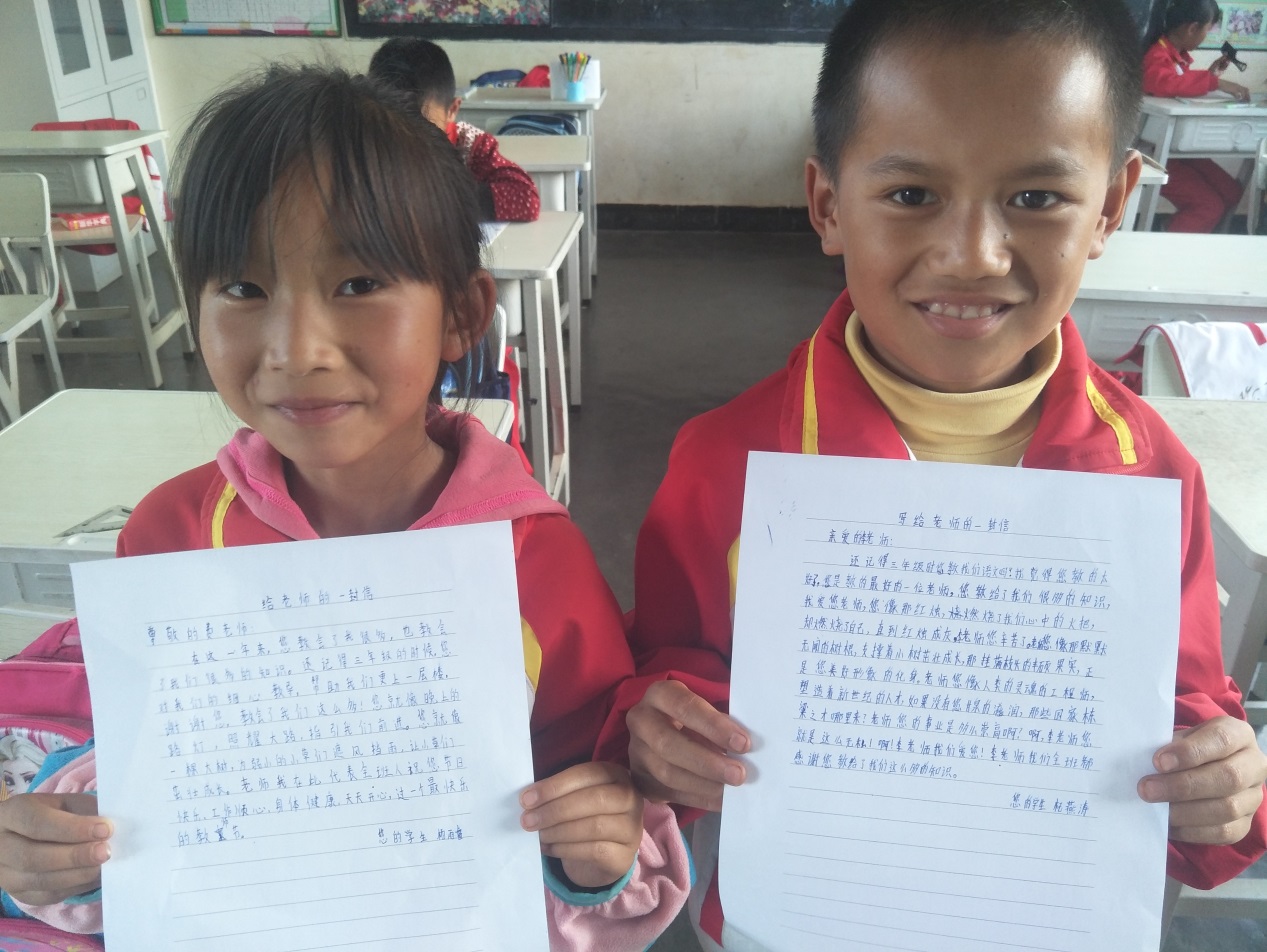 给老师的一封信
尊敬的老师
在这一年来，您教会了我很多，也教会
了我们很多的知识。还记得三年级的时候，您
对我们的细心教导，帮助我们更上一层楼，
谢谢您，教会了我们这么多！您就像晚上的
路灯，照耀大路，指引我们前进。您就像
一棵大树，为弱小的小草们遮风挡雨，让小草们
茁壮成长。老师我在此代表全班人祝您节日
快乐、工作顺心、身体健康、天天开心，过一个最快乐
的教师节。
您的学生
写给老师的一封信
亲爱的李老师：
还记得三年级时您教我们语文吗？我觉得您教的太
好了，您是教的最好的一位老师。您教给了我们很多的知识，
我爱您老师，您像那红烛，燃烧了我们心中的火把，
却燃烧了自己，直到红烛成灰。李老师您辛苦了，您像那默默
无闻的树根，支撑着小树茁壮成长，那挂满枝头的硕果累累，正
是您美好形象的化身。老师您像人类的灵魂的工程师，
塑造着新世纪的人才，如果没有您的滋润，那些国家栋
梁之才哪里来？老师您的事业是多么崇高啊！啊，李老师您
就是这么无私！啊！李老师我们爱您！李老师我们全班都
感谢您教给了我们这么多的知识。
您的学生